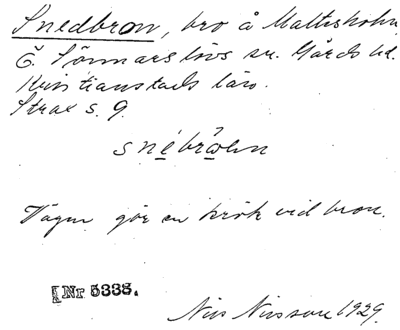 Snedbron, bro å Maltesholm
Ö. Sönnarslövs sn. Gärds hd.
Kristianstads län.
Strax s. 9.
snébrỏen
Vägen gör en krök vid bron.
[Nr 5335.
Nils Nilsson 1929.